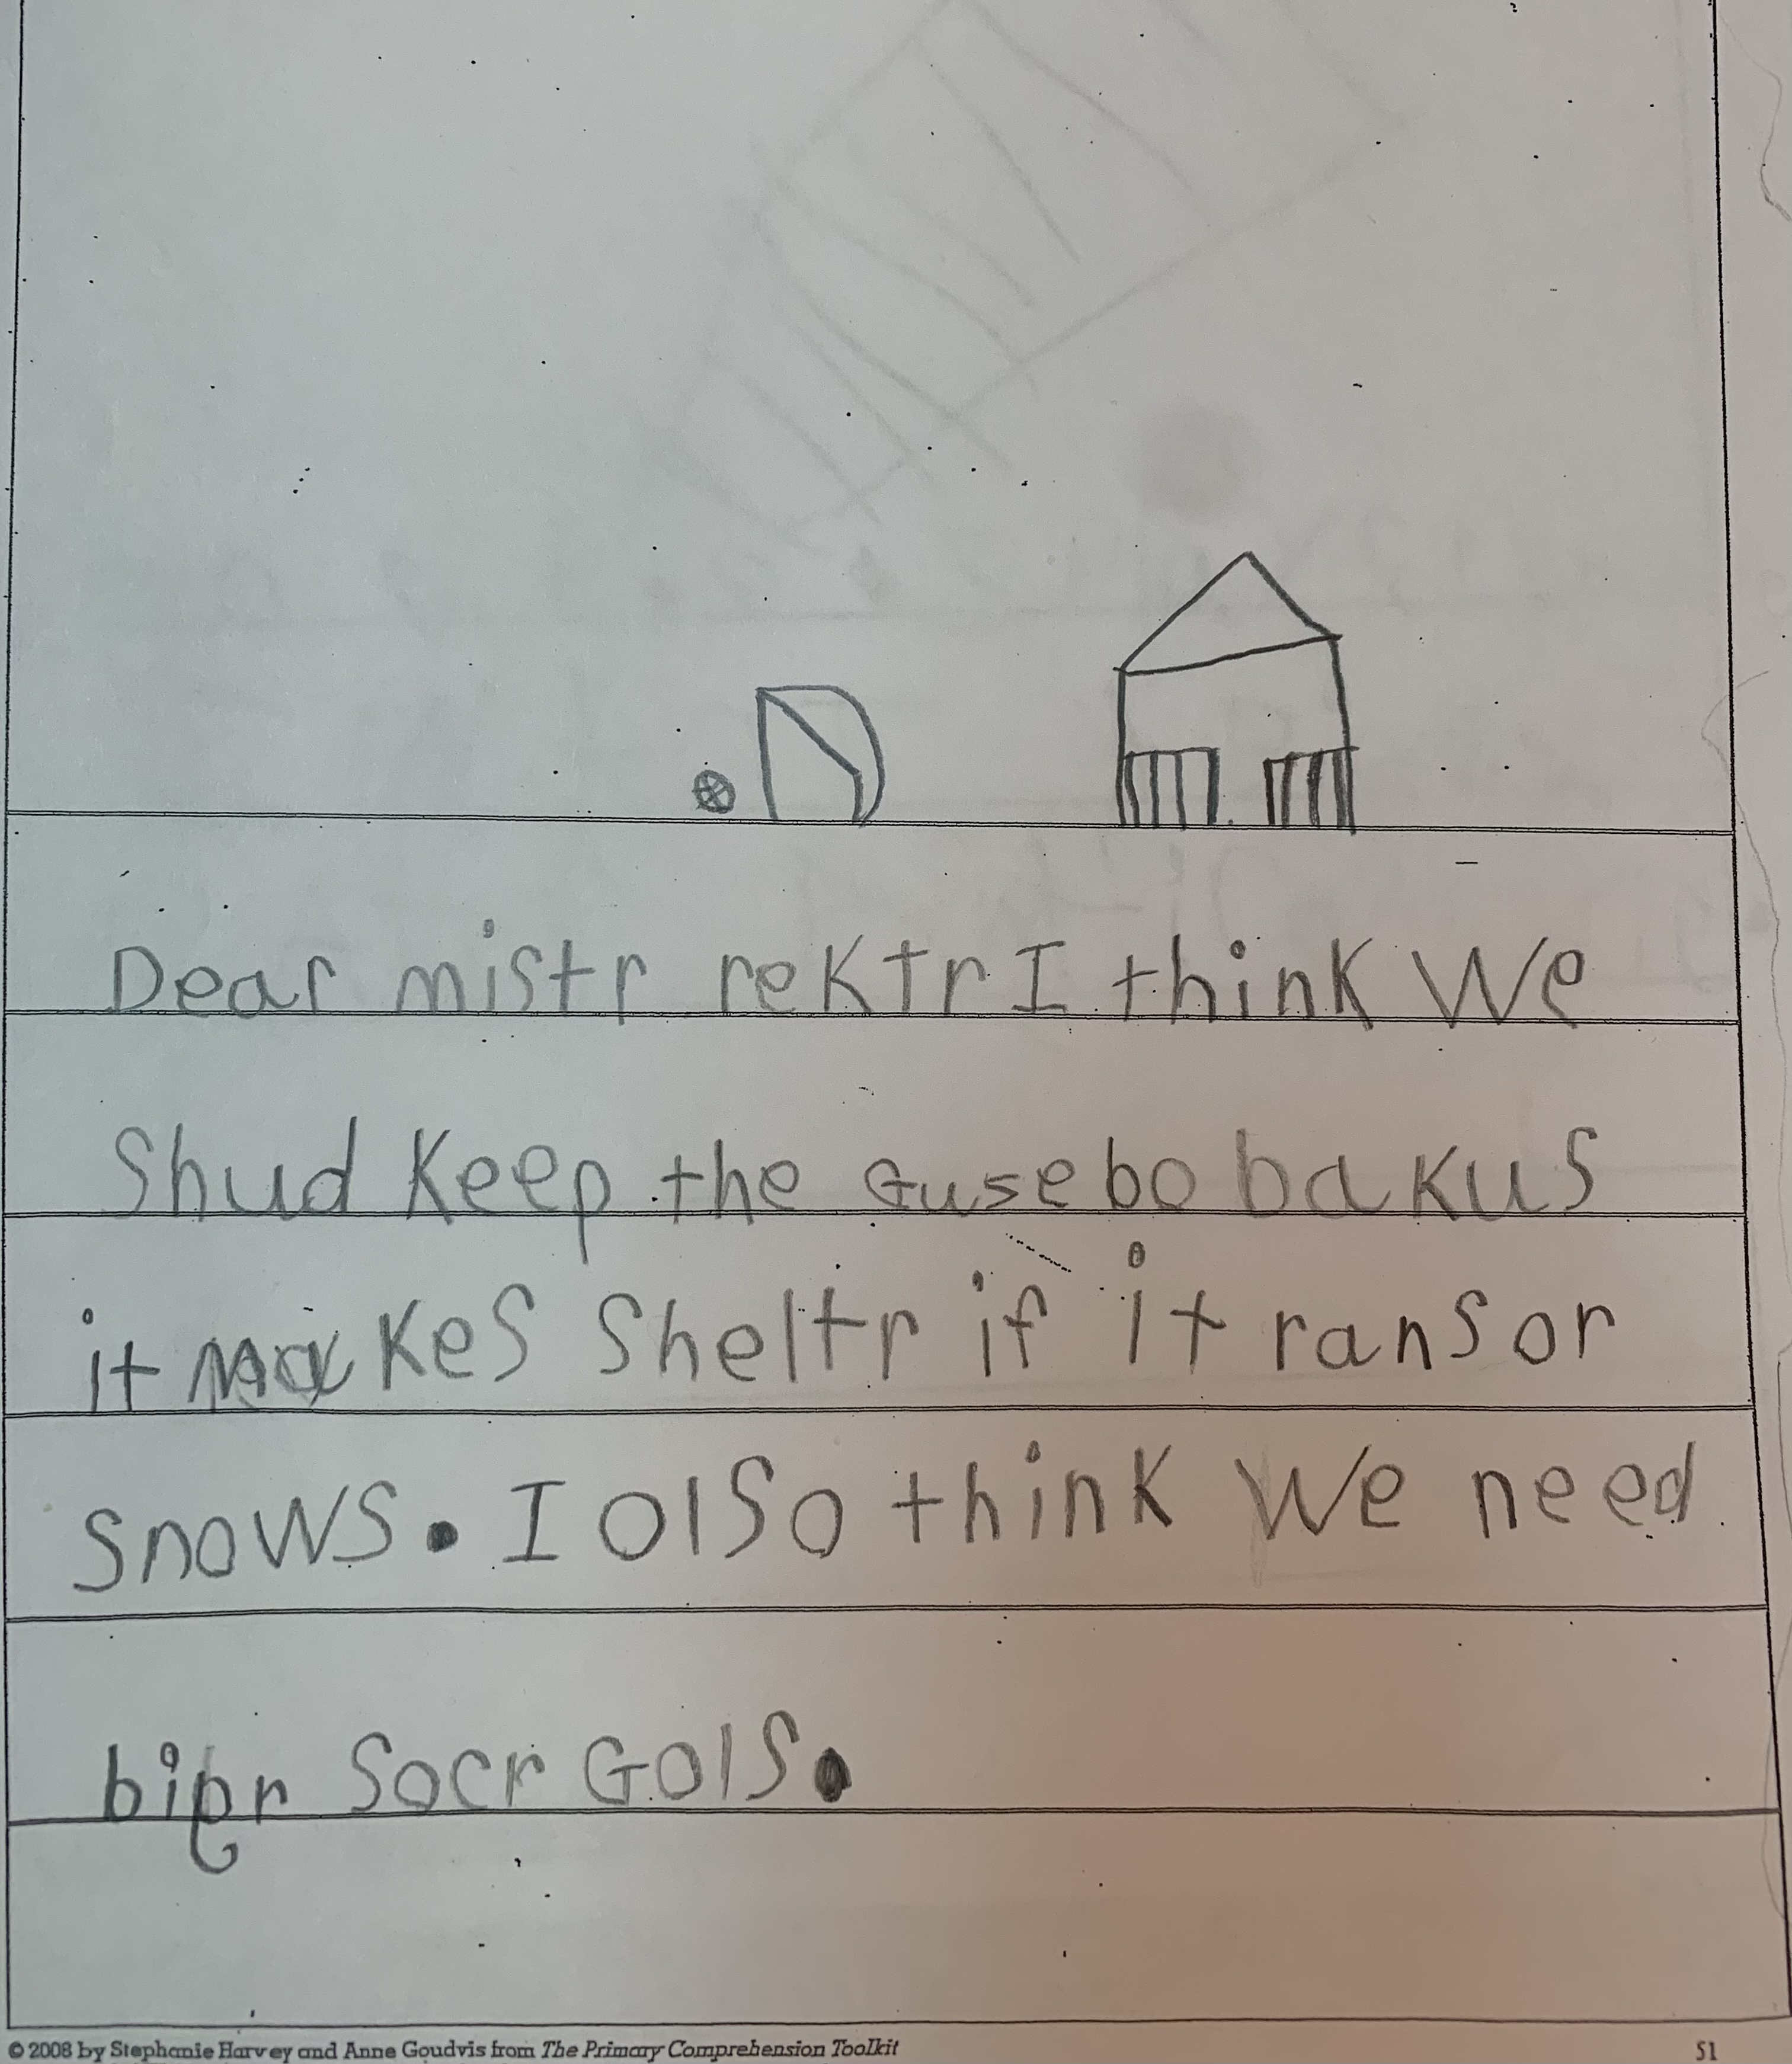 Dear mistr rektr I think we
Shud Keep the Gusebo bakus
it makes Sheltr if it rans or
snows. I olso think we need
bigr Socr Gols.
© 2008 by Stephanie Harvey and Anne Goudvis from The Primary Comprehension Toolkit 51